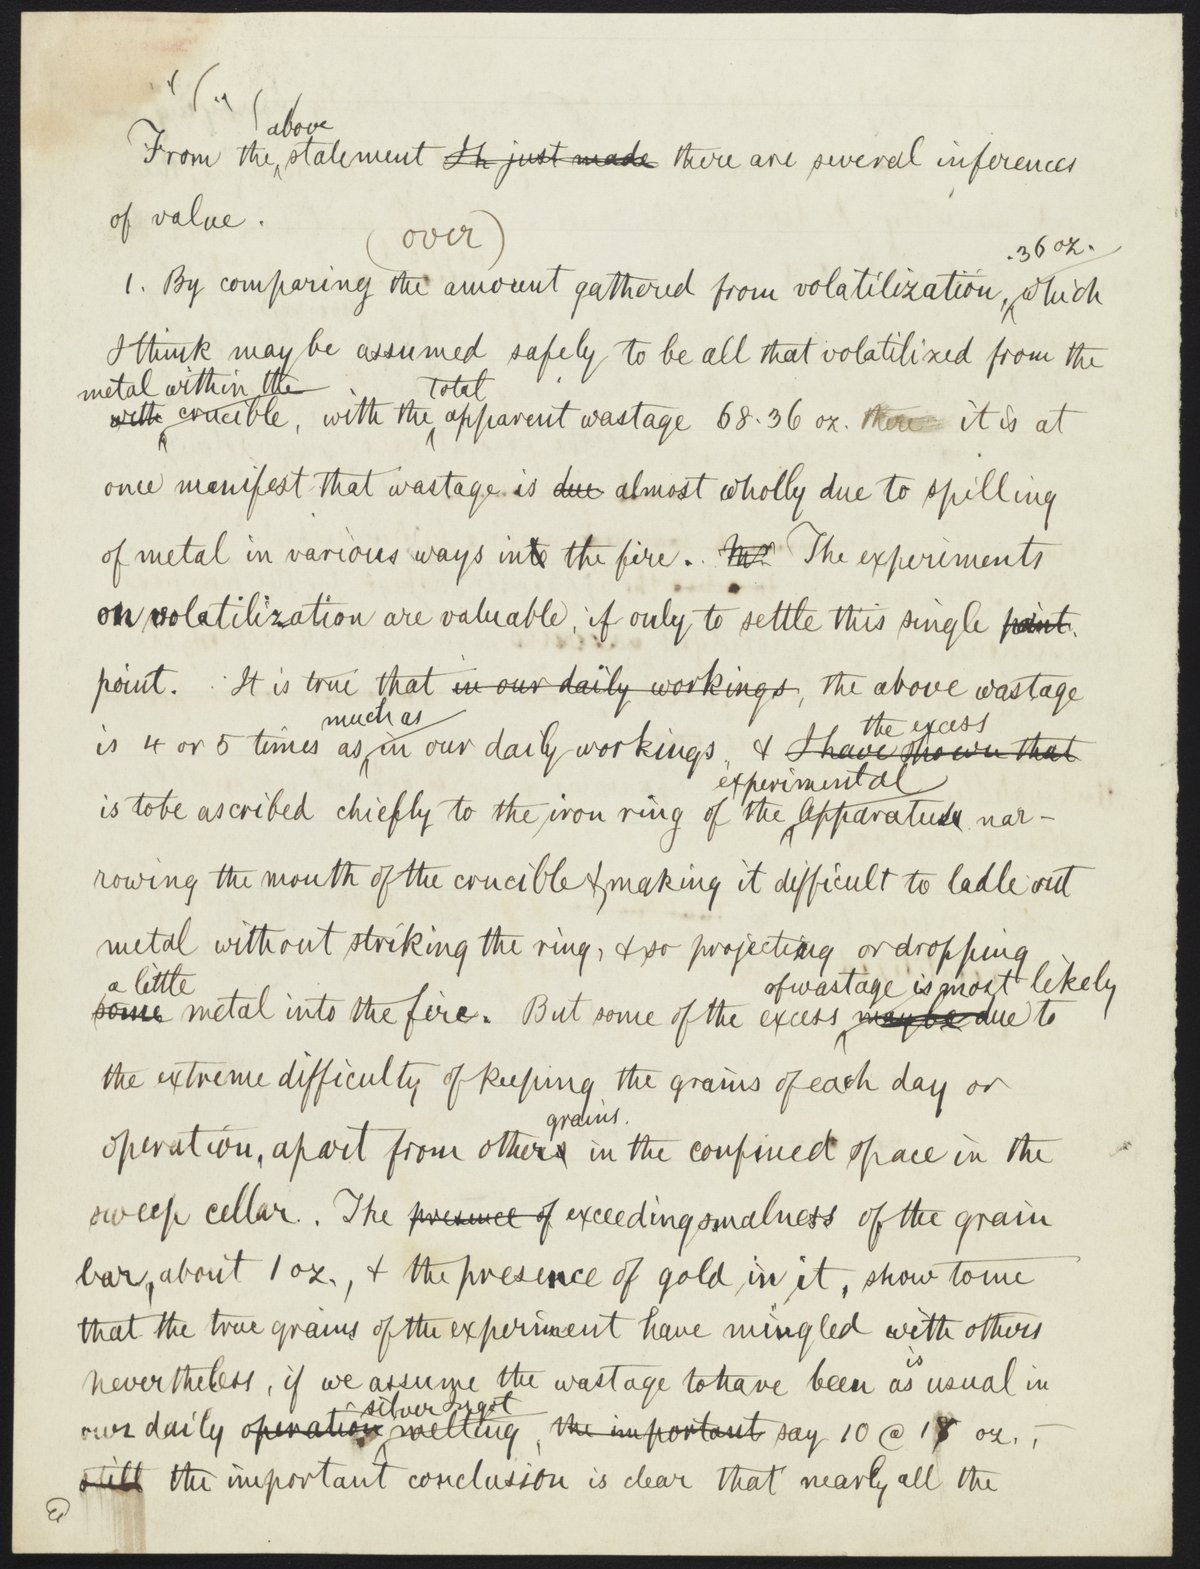 above
From the statement I h just made there are several inferences
of value.
(over)
.36 oz.
1. By comparing the amount gathered from volatilization, which
I think may be assumed safely to be all that volatilized from the
metal within the total
with crucible, with the apparent wastage 68.36 oz. there it is at
once manifest that wastage is due almost wholly due to spilling
of metal in various ways into the fire. The experiments
on volatilization are valuable, if only to settle this single point
point. It is true that in our daily workings, the above wastage
much as the excess
is 4 or 5 times as in our daily workings, & I have shown that
experimental
is to be ascribed chiefly to the iron ring of the apparatus nar-
rowing the mouth of the crucible & making it difficult to ladle out
metal without striking the ring, & so projecting or dropping
a little of wastage is most likely
some metal into the fire. But some of the excess may be due to
the extreme difficulty of keeping the grains of each day or
grains.
operation, apart from others in the confined space in the
sweep cellar. The presence of exceeding smalness of the grain
bar, about 1 oz., & the presence of gold in it, show to me
that the true grains of the experiment have mingled with others
is
nevertheless, if we assume the wastage to have been as usual in
silver ingot
our daily operation melting, the important say 10 @ 18 oz.,
still the important conclusion is clear that nearly all the